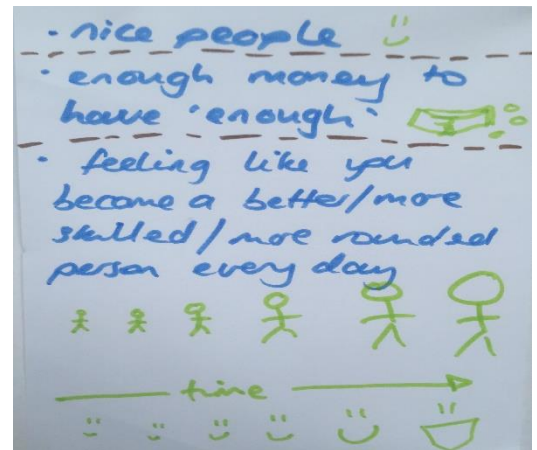 · nice people
· enough money to
have 'enough'
· feeling like you
become a better/more
skilled/more rounded
person every day
time